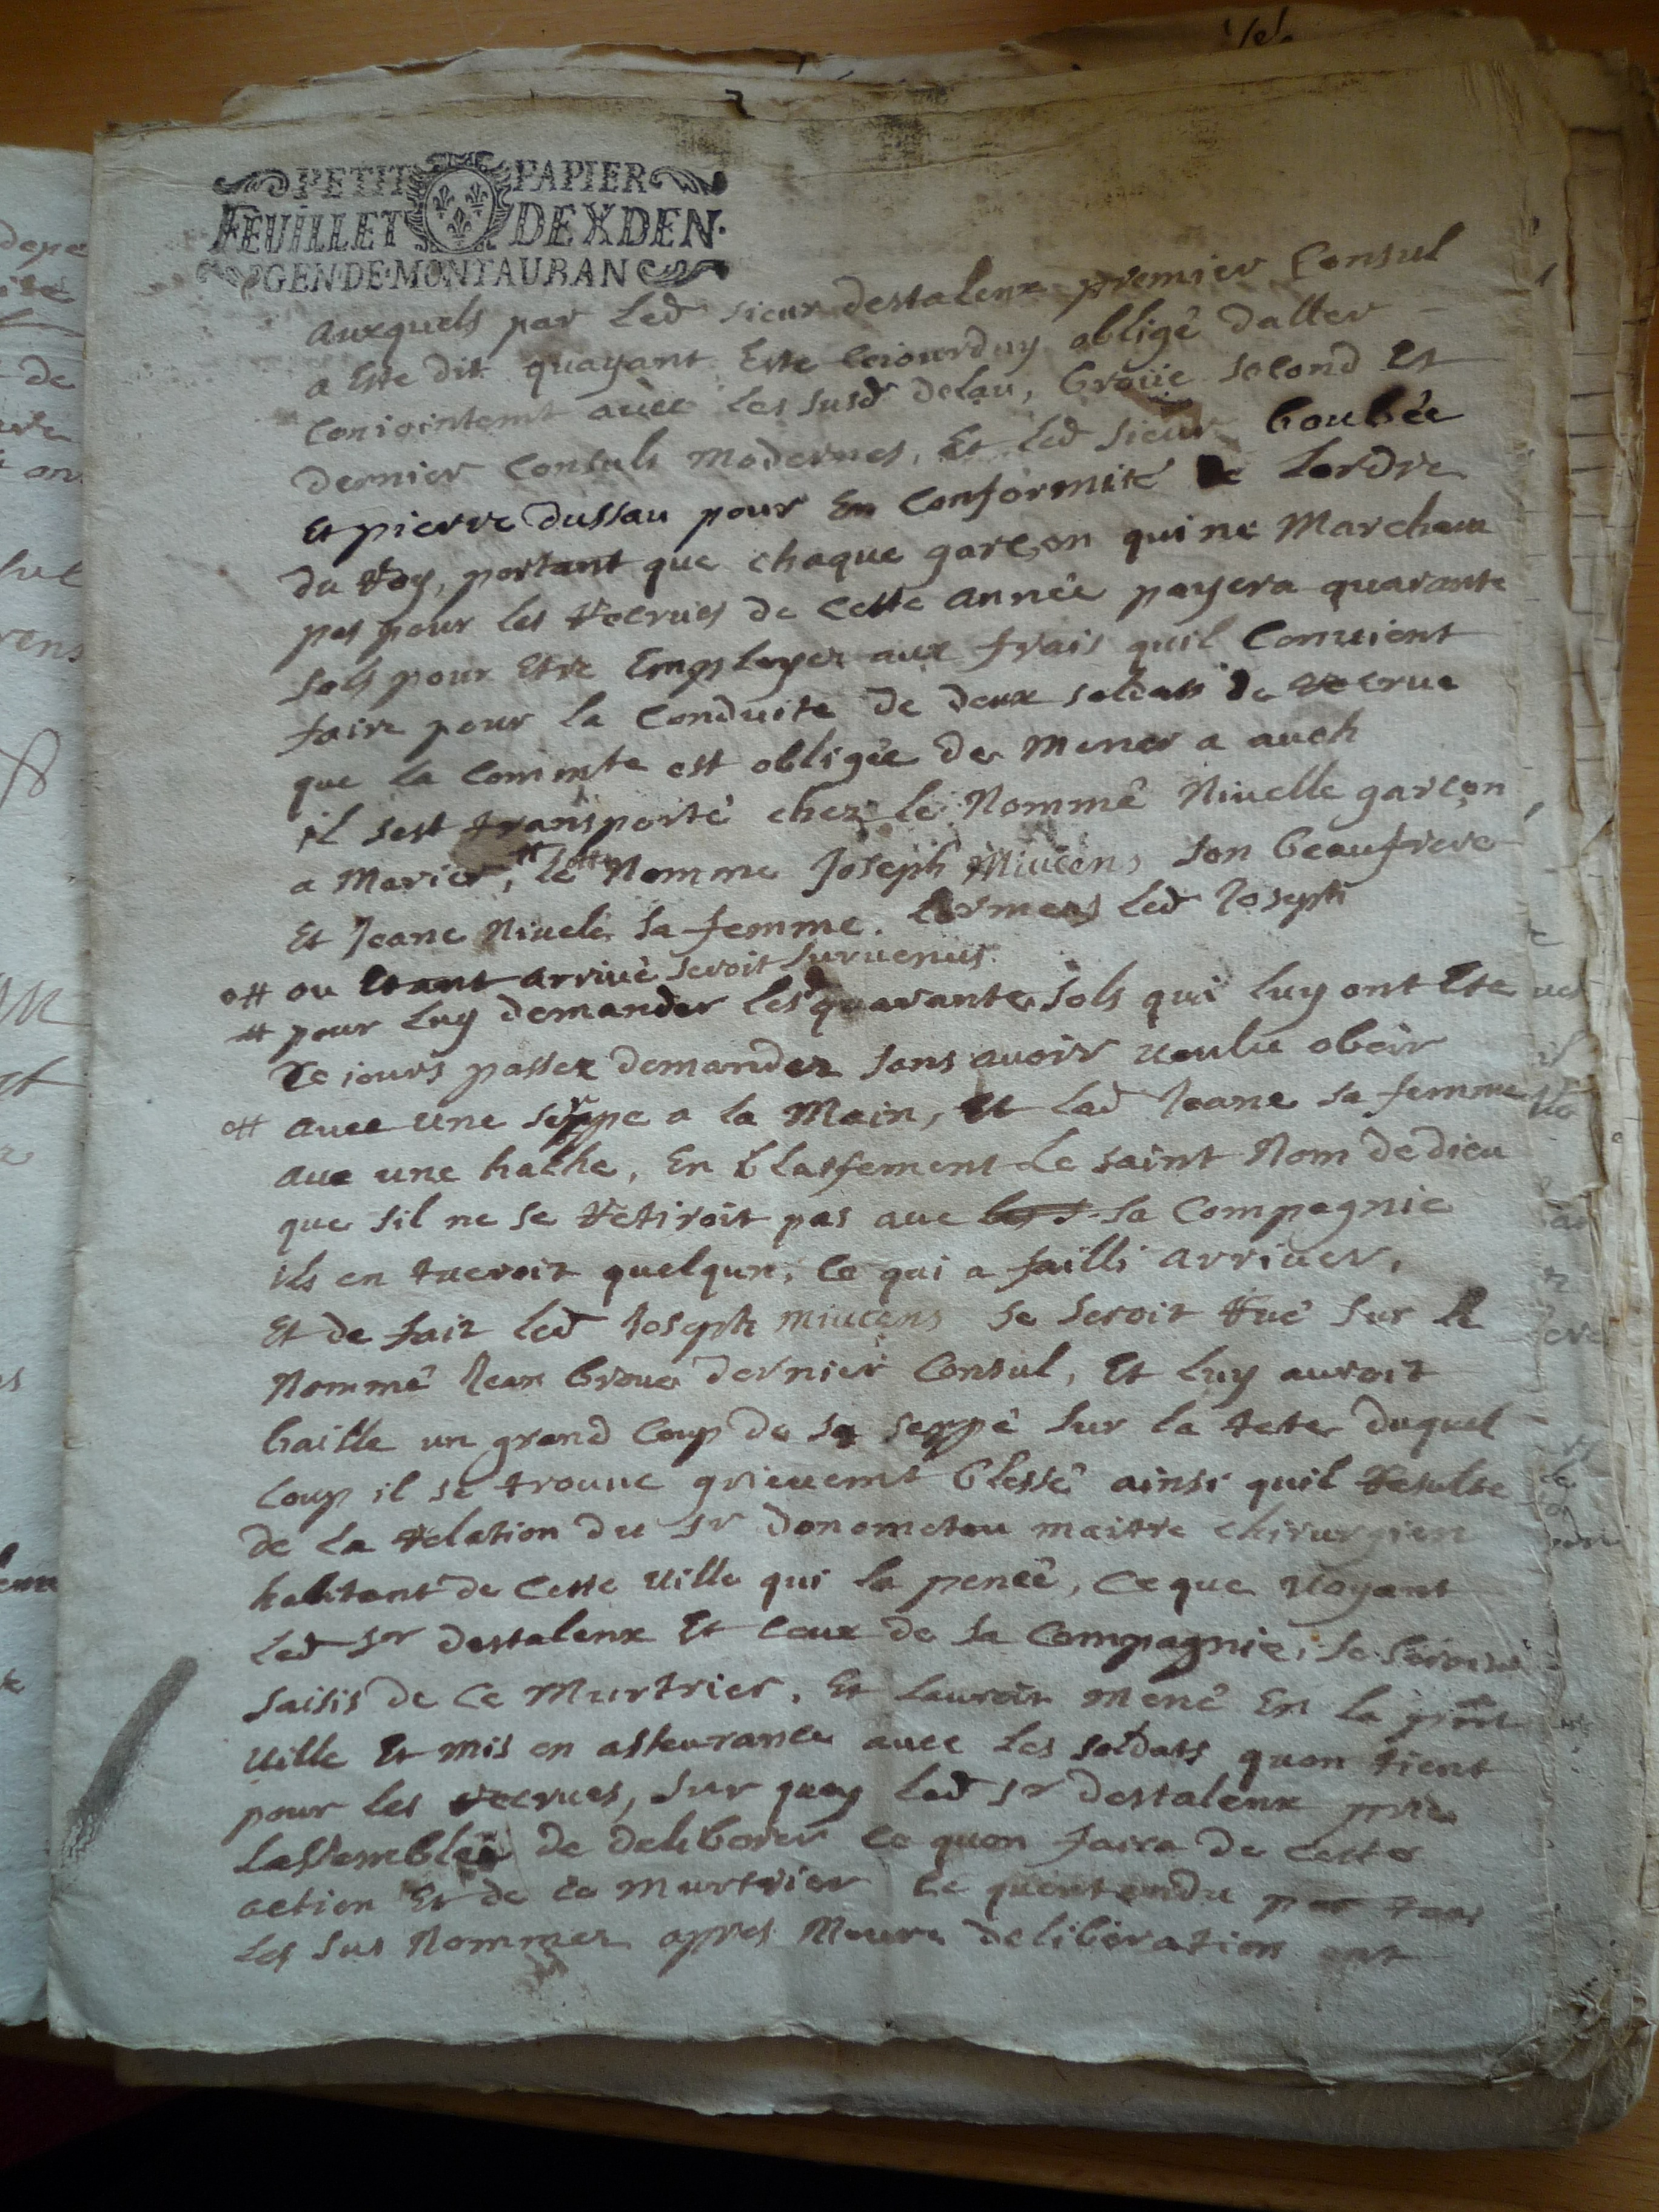 PETIT PAPIER
FEUILLET DEXDEN.
GEN.DE.MONTAUBAN
auxquels par led sieur destalenx premier Consul
a este dit quayant este cejourduy obligé daller
Conjointemt avec les susd delau, broüe second et
dernier Consuls modernes, et led sieur boubée
et pierre dussau pour en Conformité de lordre
du Roy, portant que chaque garçon qui ne Marchera
pas pour les recrues de cette année payera quarante
sols pour etre Employer aux frais quil Convient
faire pour la Conduite de deux soldats de recrue
que la Commte est obligée de mener a auch
il sest transporté chez le Nommé Nivelle garçon
a Marier, # le Nomme Joseph Mivcens son beaufrere
et Jeane Nivele sa femme. led Joseph
o# ou etant arrivé seroit survenus
# pour luy demander les quarante sols qui luy ont ete
Ce jours passez demandez sans avoir voulu obeir
o# avec une serppe a la Main, et lad Jeane sa femme
ave une hache, en blasfement le saint Nom de dieu
que sil ne se retiroit pas ave sa Compagnie
ils en tueroit quelqun, ce qui a failli arriver,
et de fait led Joseph mivcens se seroit rué sur le
Nommé Jean broue dernier Consul, et luy auroit
baille un grand Coup de sa serppe sur la tete duquel
Coup il se trouve grievemt blessé ainsi quil resulte
de la relation du sr donometou maitre chirurgien
habitant de cette ville qui la pencé, ce que voyant
led sr destalenx et ceux de sa Compagnie, se seroint
saisis de ce Murtrier, et lauroir mené en la pnte
ville et mis en asseurance avec les soldats quon tient
pour les recrues, sur quoy led sr destalenx prie
lassemblée de deliberer ce quon faira de cette
action et de ce murtrier ce quentendu par tous
les sus Nommez appres Meure deliberation ont